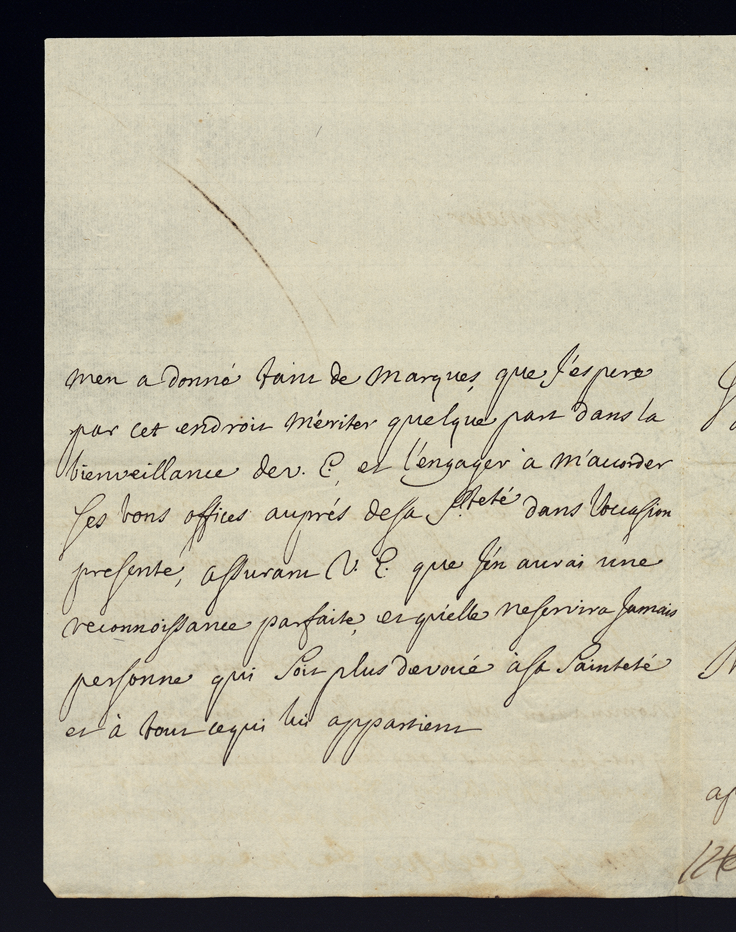 men a donné tant de marques, que J'espere
par cet endroit mériter quelque part dans la
bienveillance de v. E. et l'engager à m'accorder
ses bons offices auprés de sa Steté dans l'occasion
presente, assurant V. E. que j'en aurai une
reconnoissance parfaite, et qu'elle ne servira Jamais
personne qui soit plus devoué à sa Sainteté
et à tout cequi lui appartient